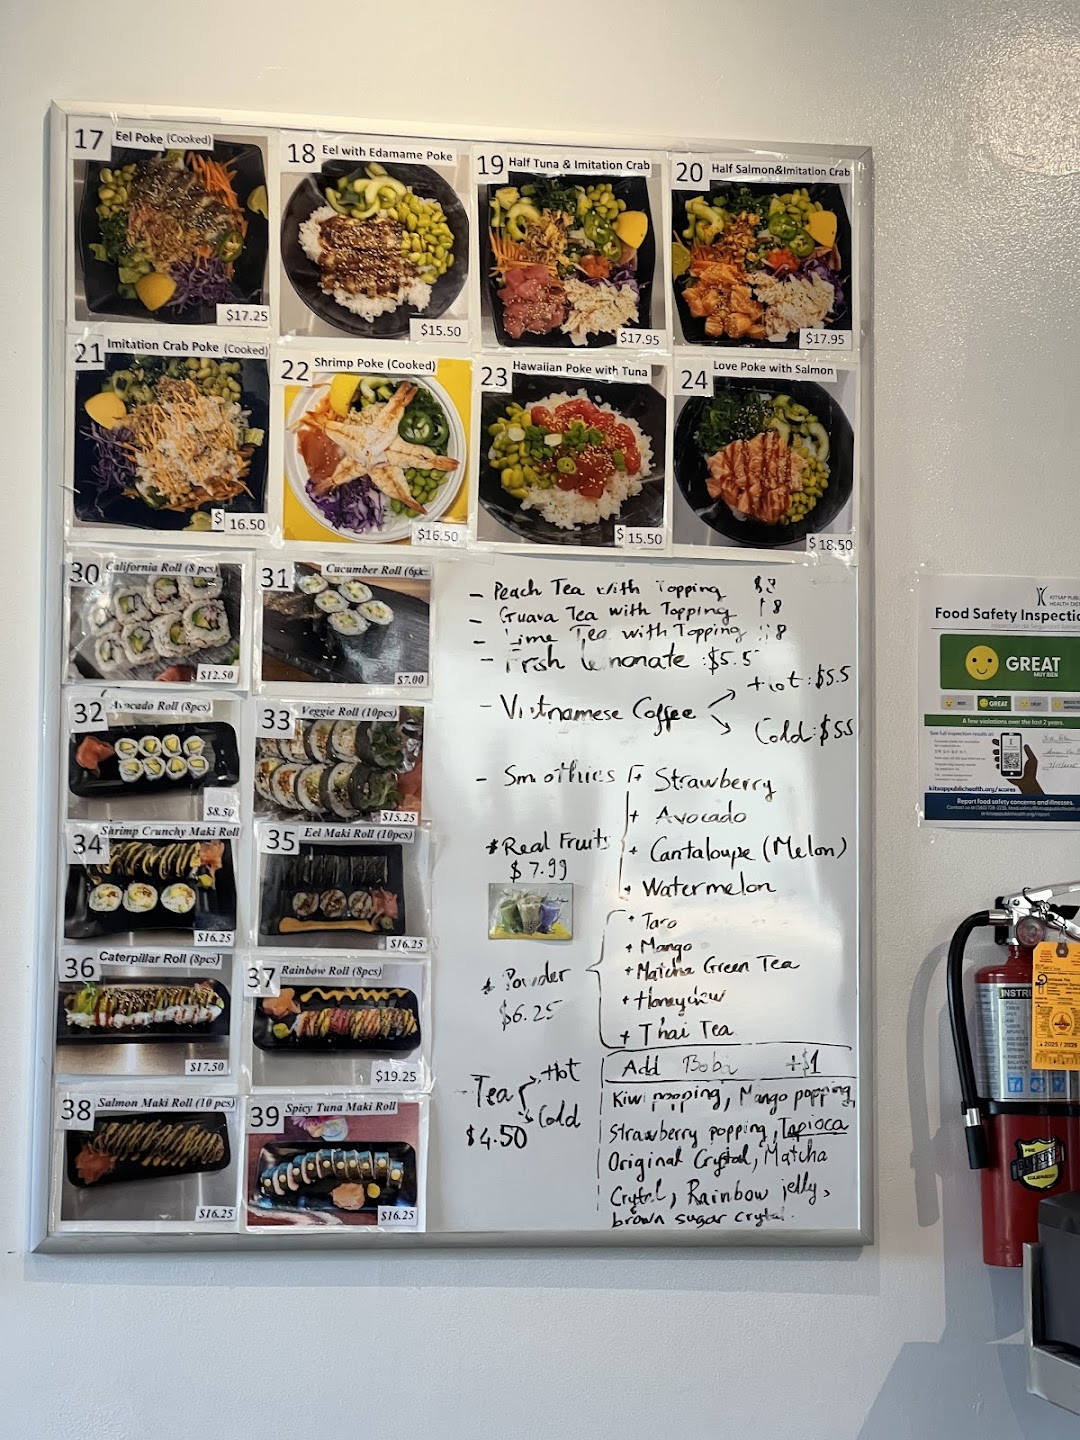 17 Eel Poke (Cooked)
$17.25
18 Eel with Edamame Poke
$15.50
19 Half Tuna & Imitation Crab
$17.95
20 Half Salmon&Imitation Crab
$17.95
21 Imitation Crab Poke (Cooked)
$ 16.50
22 Shrimp Poke (Cooked)
$16.50
23 Hawaiian Poke with Tuna
$ 15.50
24 Love Poke with Salmon
$ 18.50
30 California Roll (8 pcs)
$12.50
31 Cucumber Roll (6pcs
$7.00
32 Avocado Roll (8pcs)
$8.50
33 Veggie Roll (10pcs)
$15.25
34 Shrimp Crunchy Maki Roll
$16.25
35 Eel Maki Roll (10pcs)
$16.25
36 Caterpillar Roll (8pcs)
$17.50
37 Rainbow Roll (8pcs)
$19.25
38 Salmon Maki Roll (10 pcs)
$16.25
39 Spicy Tuna Maki Roll
$16.25
- Peach Tea with Topping
- Guava Tea with Topping 8
- Lime Tea with Topping 8
- Frish lemonate : $5.5
- Vietnamese Coffee
Hot : $5.5
Cold : $5.5
- Smoothies
+ Strawberry
+ Avocado
+ Cantaloupe (Melon)
+ Watermelon
* Real Fruits
$ 7.99
+ Taro
+ Mango
+ Matcha Green Tea
+ Honeydew
+ Thai Tea
* Powder
$6.25
- Tea
Hot
Cold
$4.50
Add Boba +$1
Kiwi popping, Mango popping,
Strawberry popping, Tapioca
Original Crystal, Matcha
Crytal, Rainbow jelly,
brown sugar crytal.
KITSAP PUBLIC
HEALTH DIST
Food Safety Inspectio
GREAT
MUY BIEN
GREAT
A few violations over the last 2 years.
See full inspection results at:
kitsappublichealth.org/scores
Report food safety concerns and illnesses.
INSTRU
2025 / 2026